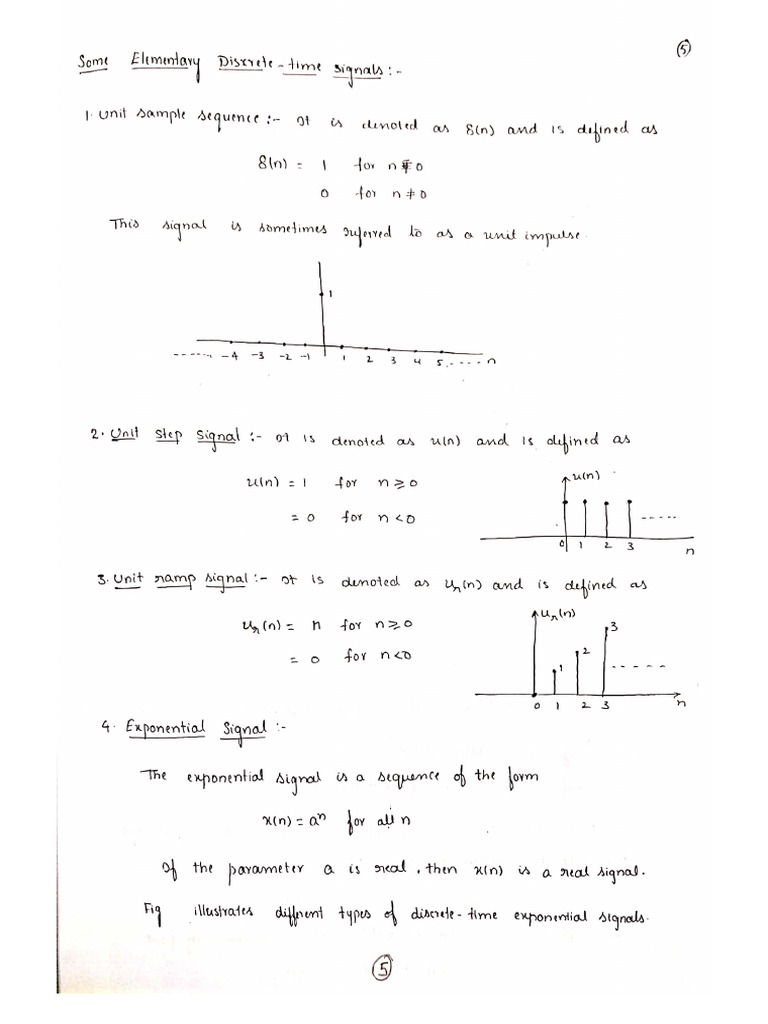 5
Some Elementary Discrete-time signals:-
1. Unit sample sequence:- It is denoted as δ(n) and is defined as
δ(n) = 1 for n = 0
0 for n ≠ 0
This signal is sometimes referred to as a unit impulse.
1
----- -4 -3 -2 -1 1 2 3 4 5 ..... n
2. Unit step signal:- It is denoted as u(n) and is defined as
u(n) = 1 for n ≥ 0
= 0 for n < 0
u(n)
-----
0 1 2 3 n
3. Unit ramp signal:- It is denoted as ur(n) and is defined as
ur(n) = n for n ≥ 0
= 0 for n < 0
ur(n)
1 2 3
-----
0 1 2 3 n
4. Exponential Signal:-
The exponential signal is a sequence of the form
x(n) = aⁿ for all n
If the parameter a is real, then x(n) is a real signal.
Fig illustrates diffrent types of discrete-time exponential signals.
5